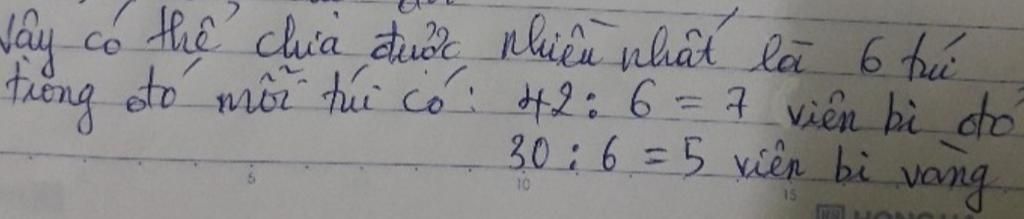 Vậy có thể chia được nhiều nhất là 6 túi
trong đó mỗi túi có: 42 : 6 = 7 viên bi đỏ
30 : 6 = 5 viên bi vàng
5 10 15